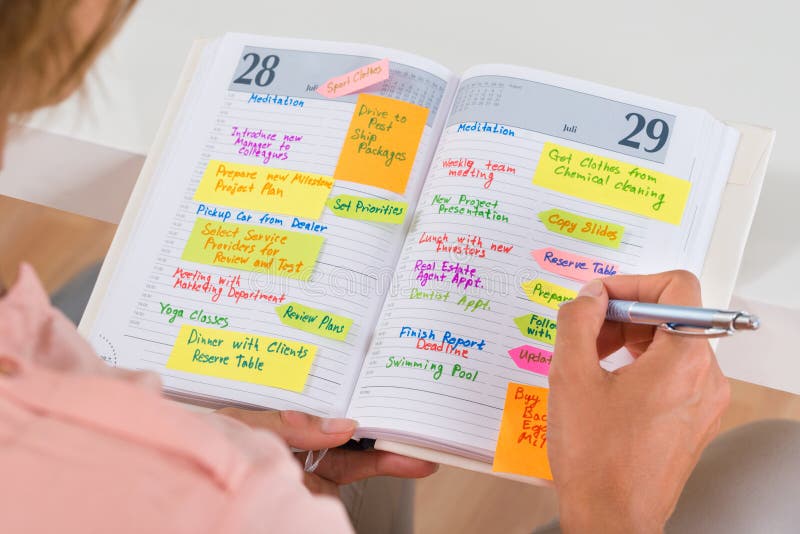 28
Juli
Sport Clothes
Meditation
Drive to
Post
Ship
Packages
Introduce new
Manager to
Colleagues
Prepare new Milestone
Project Plan
Set Priorities
Pickup Car from Dealer
Select Service
Providers for
Review and Test
Meeting with
Marketing Department
Review Plans
Yoga Classes
Dinner with Clients
Reserve Table
Juli
29
Meditation
Get Clothes from
Chemical cleaning
Weekly team
meeting
New Project
Presentation
Copy Slides
Lunch with new
Investors
Reserve Table
Real Estate
Agent Appt.
Dentist Appt.
Prepare
Follow
with
Finish Report
Deadline
Update
Swimming Pool
Buy